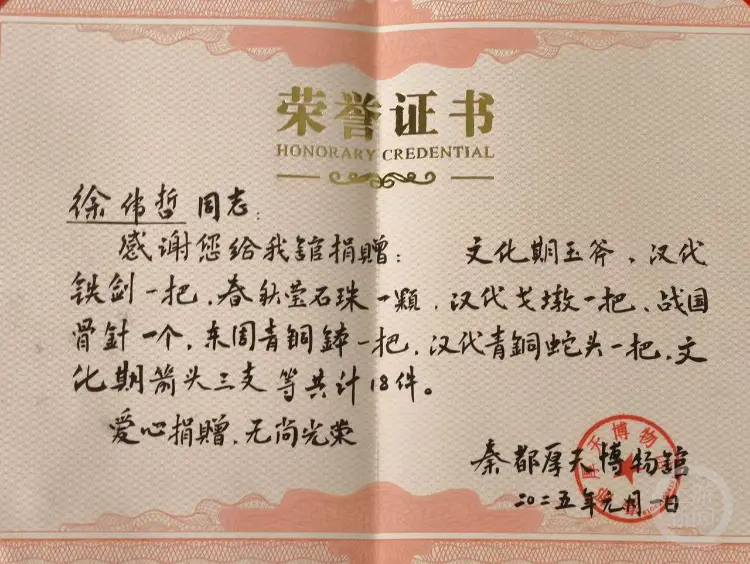 荣誉证书
HONORARY CREDENTIAL
徐伟哲同志：
感谢您给我舘捐赠： 文化期玉斧、汉代
铁剑一把、春秋莹石珠一颗，汉代戈墩一把、战国
骨针一个，东周青铜钵一把，汉代青铜蛇头一把、文
化期箭头三支等共计18件。
爱心捐赠、无尚光荣
秦都厚天博物舘
二〇二五年元月一日